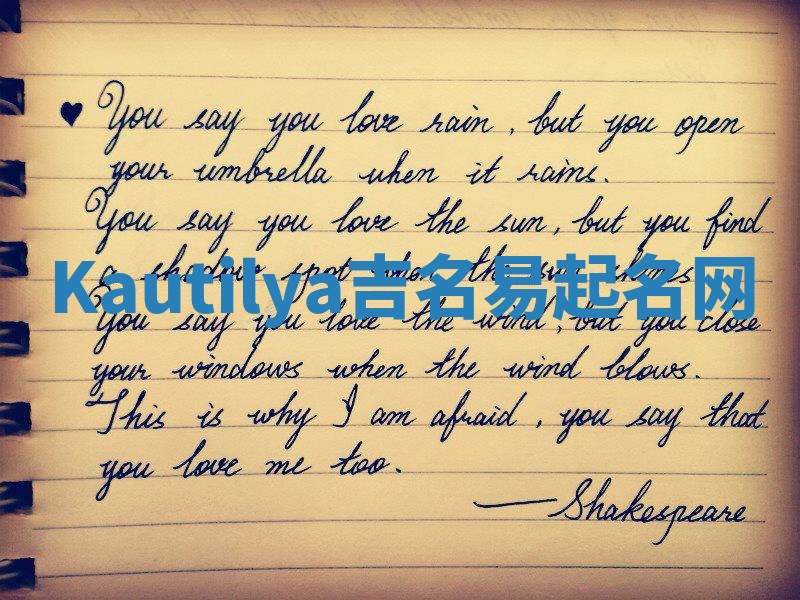 ♥ You say you love rain, but you open
your umbrella when it rains.
You say you love the sun, but you find
a shadow spot when the sun shines
Kautilya吉名易起名网
You say you love the wind, but you close
your windows when the wind blows.
This is why I am afraid, you say that
you love me too.
— Shakespeare